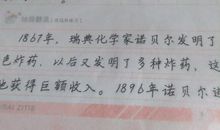 1867年，瑞典化学家诺贝尔发明了
色炸药，以后又发明了多种炸药，这
他获得巨额收入。1896年诺贝尔逝